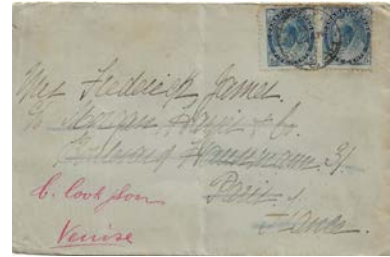 Mrs Frederick James.
c/o Morgan Harjes & Co.
Boulevard Haussmann 31
Paris.
France.
Venise